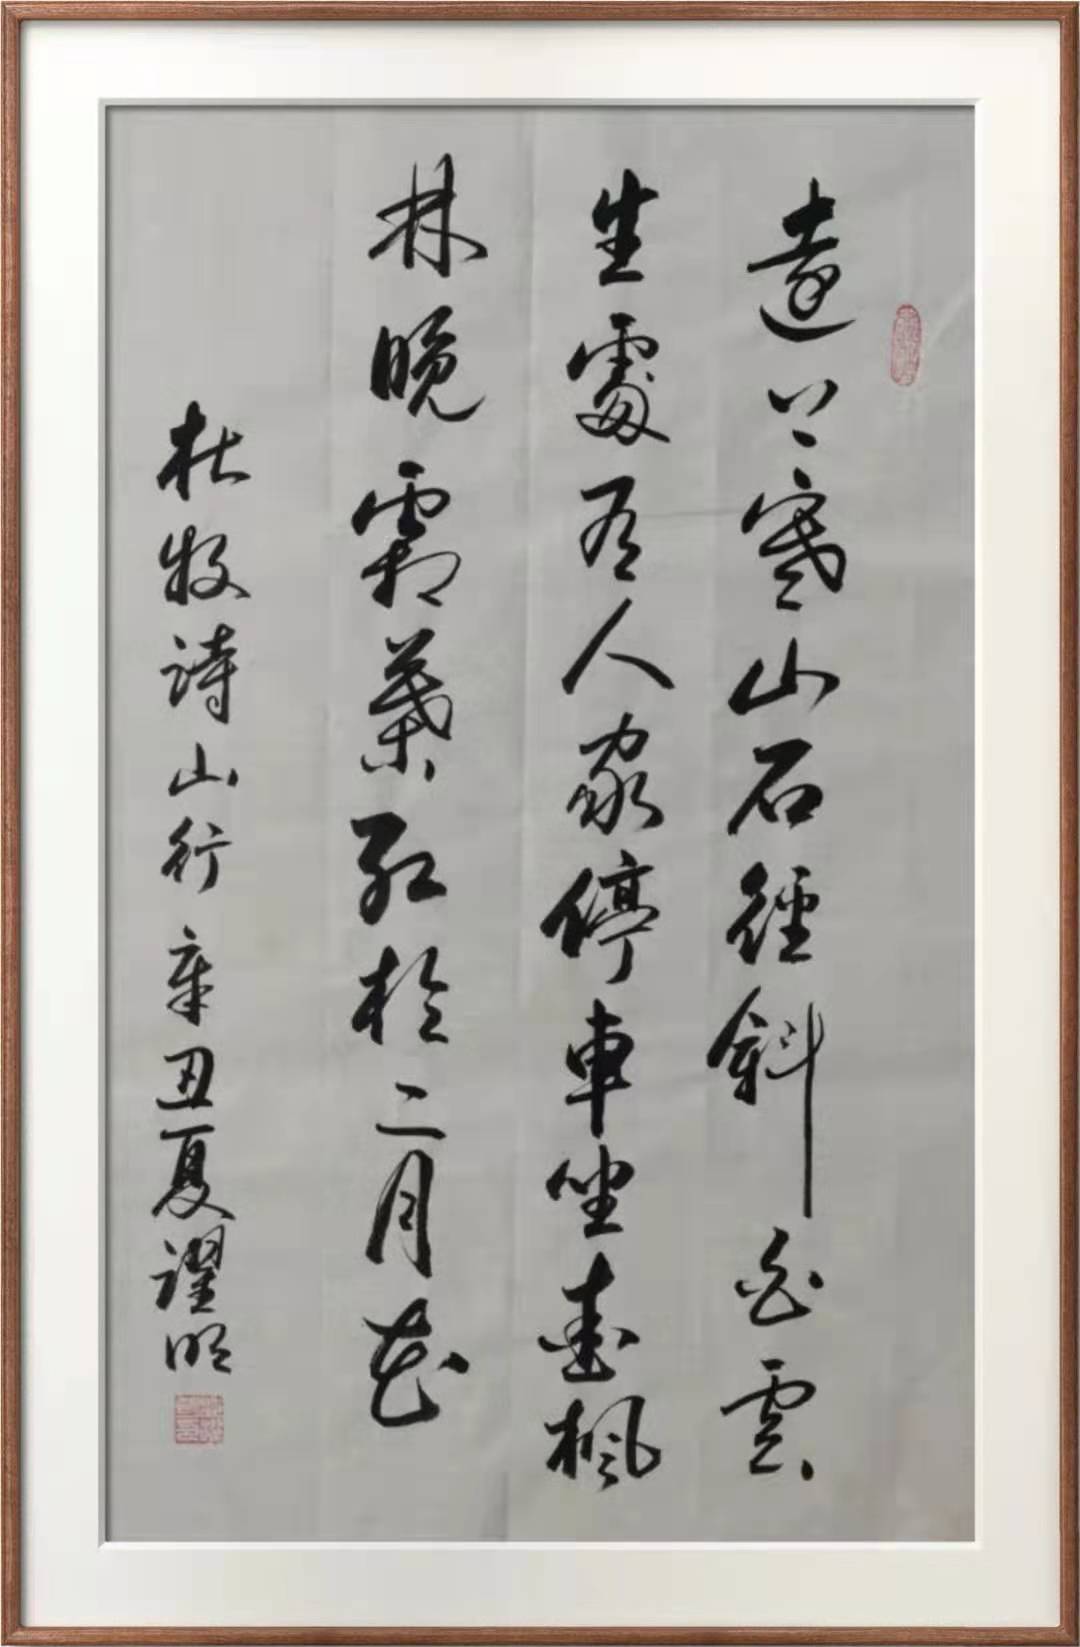 遠上寒山石徑斜白雲
生處有人家停車坐愛楓
林晚霜葉紅於二月花
杜牧詩山行辛丑夏明